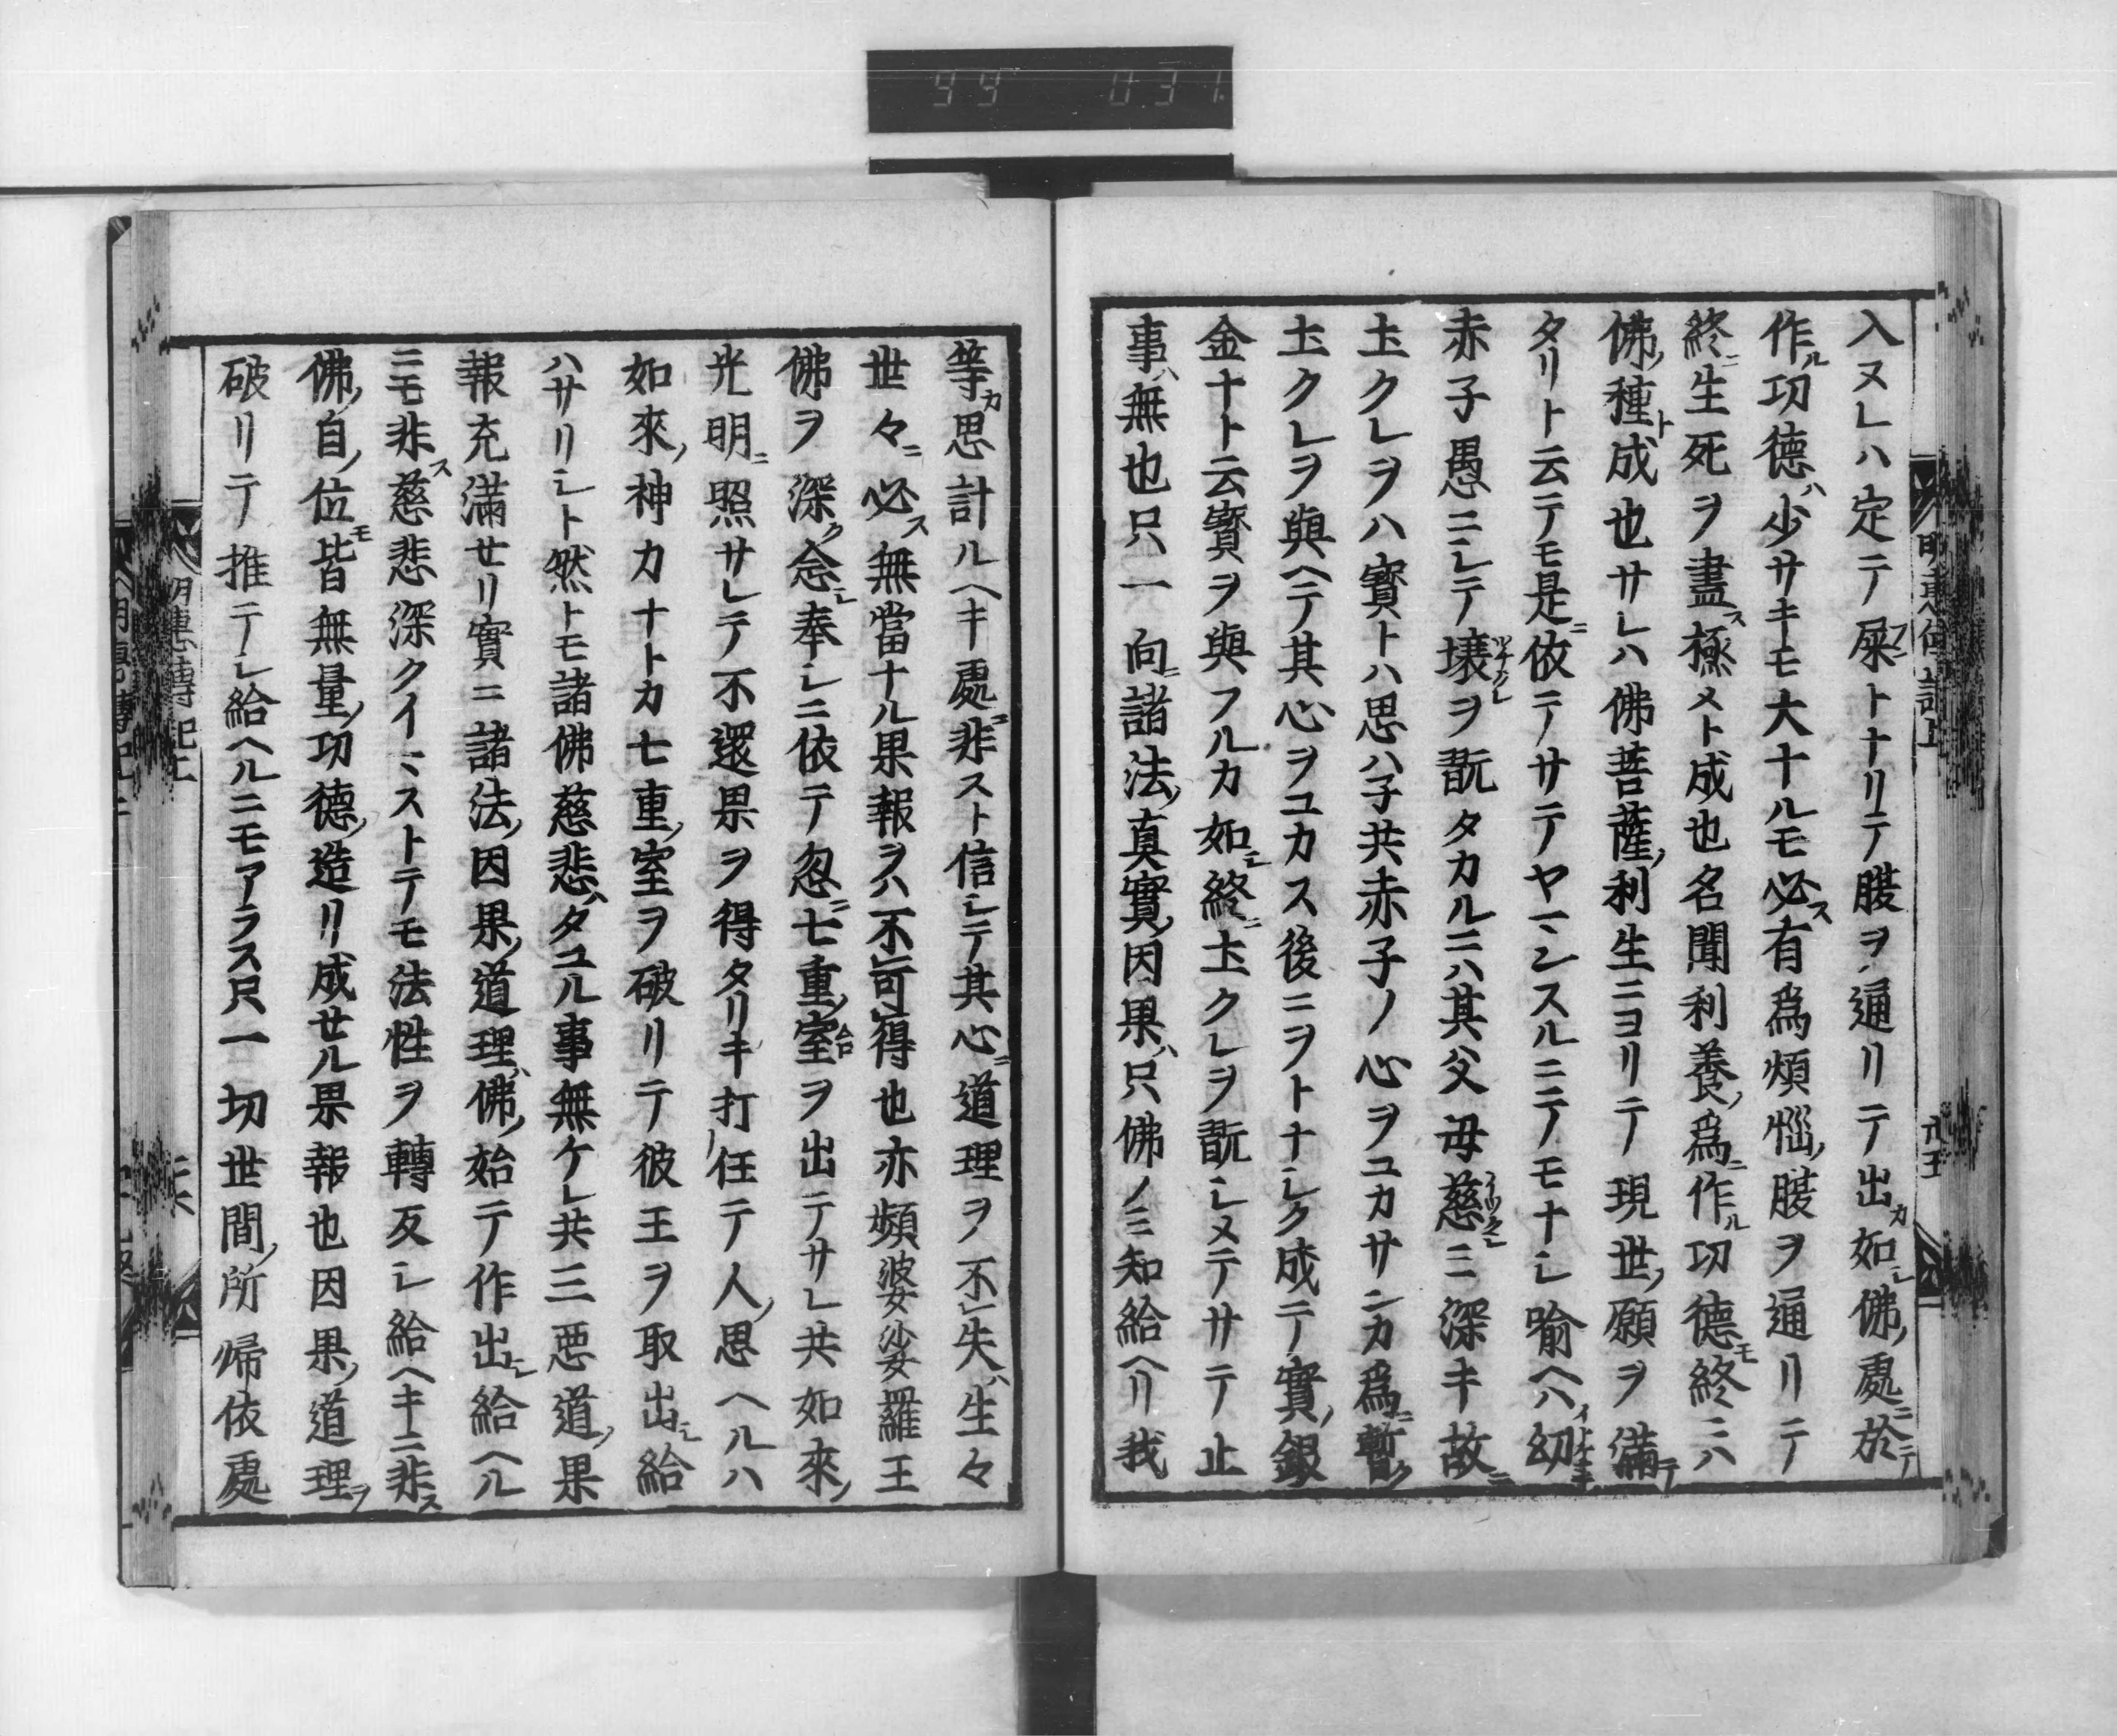 99 031
入ヌレハ定テ屎トナリテ膓ヲ通リテ出カ如シ佛ノ處ニ於テ
作ル功德ハ少サキモ大ナルモ必ス有爲煩惱ノ膓ヲ通リテ
終ニ生死ヲ盡ス極メト成也名聞利養ノ爲ニ作ル功德モ終ニハ
佛ノ種ト成也サレハ佛菩薩ノ利生ニヨリテ現世ノ願ヲ滿テ
タリト云テモ是ニ依テサテヤマンスルニテモナシ喻ヘハ幼
赤子愚ニシテ壌ヲ翫タカルニハ其父母慈ミ深キ故ニ
圡クレヲハ寳トハ思ハ子共赤子ノ心ヲユカサンカ爲ニ暫ク
圡クレヲ與ヘテ其心ヲユカス後ニヲトナシク成テ實ノ銀
金ナト云寳ヲ與フルカ如シ終ニ圡クレヲ翫シメテサテ止
事ハ無也只一向ニ諸法ノ真實ノ因果ハ只佛ノミ知給ヘリ我
等カ思計ルヘキ處ニ非スト信シテ其心ニ道理ヲ不失ハ生々
世々ニ必ス無當ナル果報ヲハ不可得也亦頻婆娑羅王
佛ヲ深ク念シ奉シニ依テ忽ニ七重ノ室ヲ出テサレ共如來ノ
光明ニ照サレテ不還果ヲ得タリキ打任テ人ノ思ヘルハ
如來ノ神力ナトカ七重ノ室ヲ破リテ彼王ヲ取出シ給
ハサリシト然トモ諸佛慈悲ハタユル事無ケレ共三惡道ノ果
報充滿セリ實ニ諸法ノ因果ノ道理ハ佛ノ始テ作出シ給ヘル
ニモ非ス慈悲深クイミストテモ法性ヲ轉反シ給ヘキニ非ス
佛ノ自ノ位モ皆無量ノ功德ノ造リ成セル果報也因果ノ道理ヲ
破リテ推テシ給ヘルニモアラス只一切世間ノ所歸依處
明惠傳記上